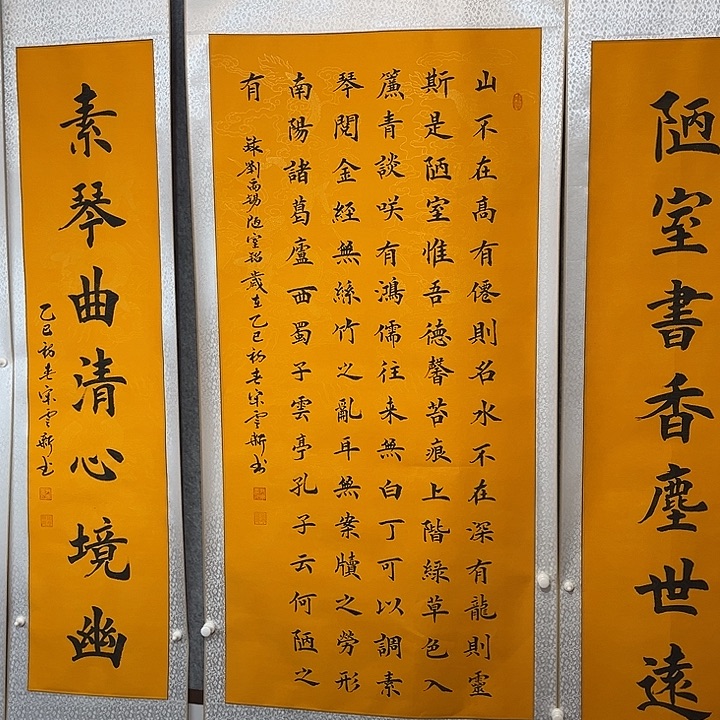 陋室書香塵世遠
山不在高有僊則名水不在深有龍則靈
斯是陋室惟吾德馨苔痕上階緑草色入
簾青談咲有鴻儒往来無白丁可以調素
琴閱金經無絲竹之亂耳無案牘之勞形
南陽諸葛廬西蜀子雲亭孔子云何陋之
有
録劉禹錫陋室銘歲在乙巳初春宋雲新書
素琴曲清心境幽
乙巳初春宋雲新書